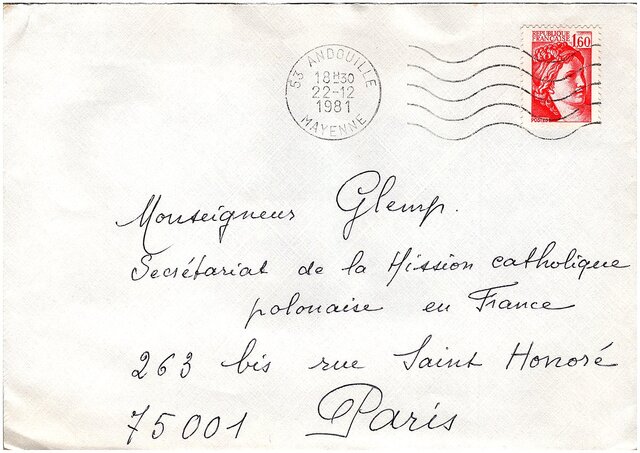 53 ANDOUILLE
18H30
22-12
1981
MAYENNE
REPUBLIQUE
FRANÇAISE 1,60
POSTES
Monseigneur Glemp.
Secrétariat de la Mission catholique
polonaise en France
263 bis rue Saint Honoré
75001 Paris